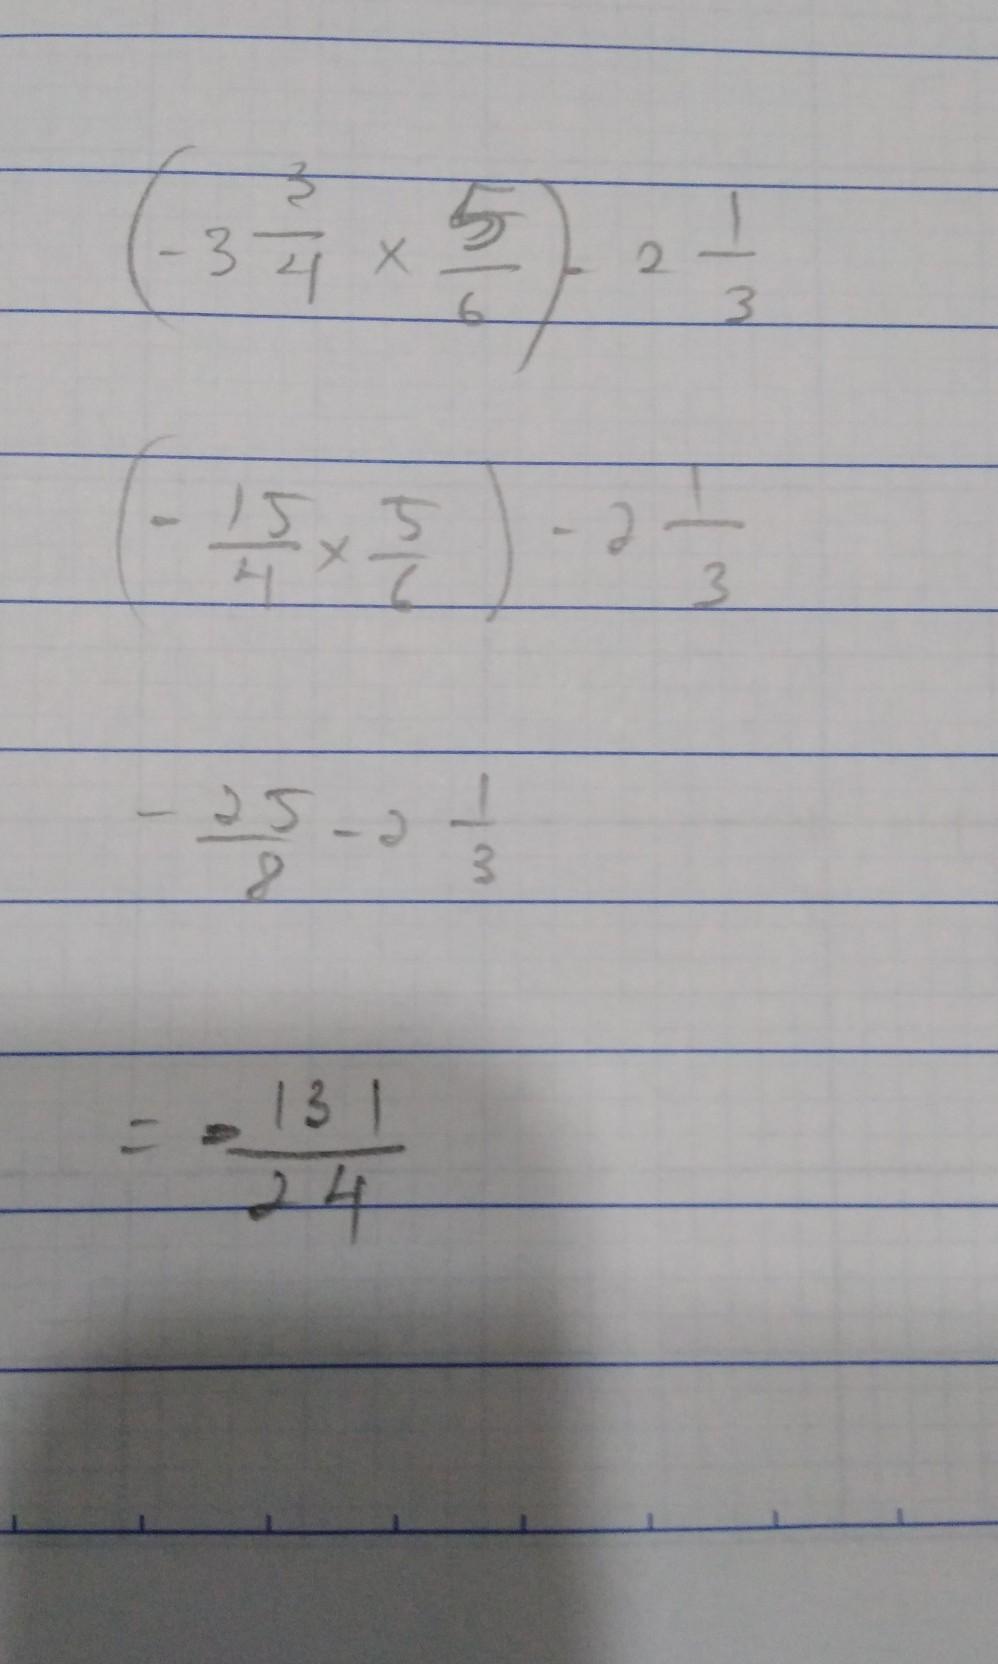 (-3 3/4 × 5/6) - 2 1/3
(- 15/4 × 5/6) - 2 1/3
- 25/8 - 2 1/3
= - 131/24